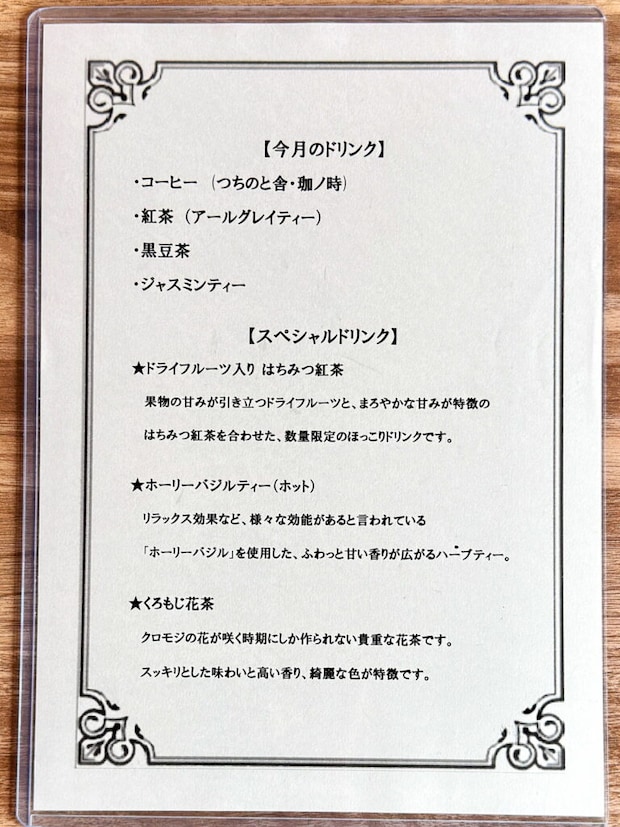 【今月のドリンク】
・コーヒー （つちのと舎・珈ノ時）
・紅茶 （アールグレイティー）
・黒豆茶
・ジャスミンティー
【スペシャルドリンク】
★ドライフルーツ入り はちみつ紅茶
果物の甘みが引き立つドライフルーツと、まろやかな甘みが特徴の
はちみつ紅茶を合わせた、数量限定のほっこりドリンクです。
★ホーリーバジルティー（ホット）
リラックス効果など、様々な効能があると言われている
「ホーリーバジル」を使用した、ふわっと甘い香りが広がるハーブティー。
★くろもじ花茶
クロモジの花が咲く時期にしか作られない貴重な花茶です。
スッキリとした味わいと高い香り、綺麗な色が特徴です。